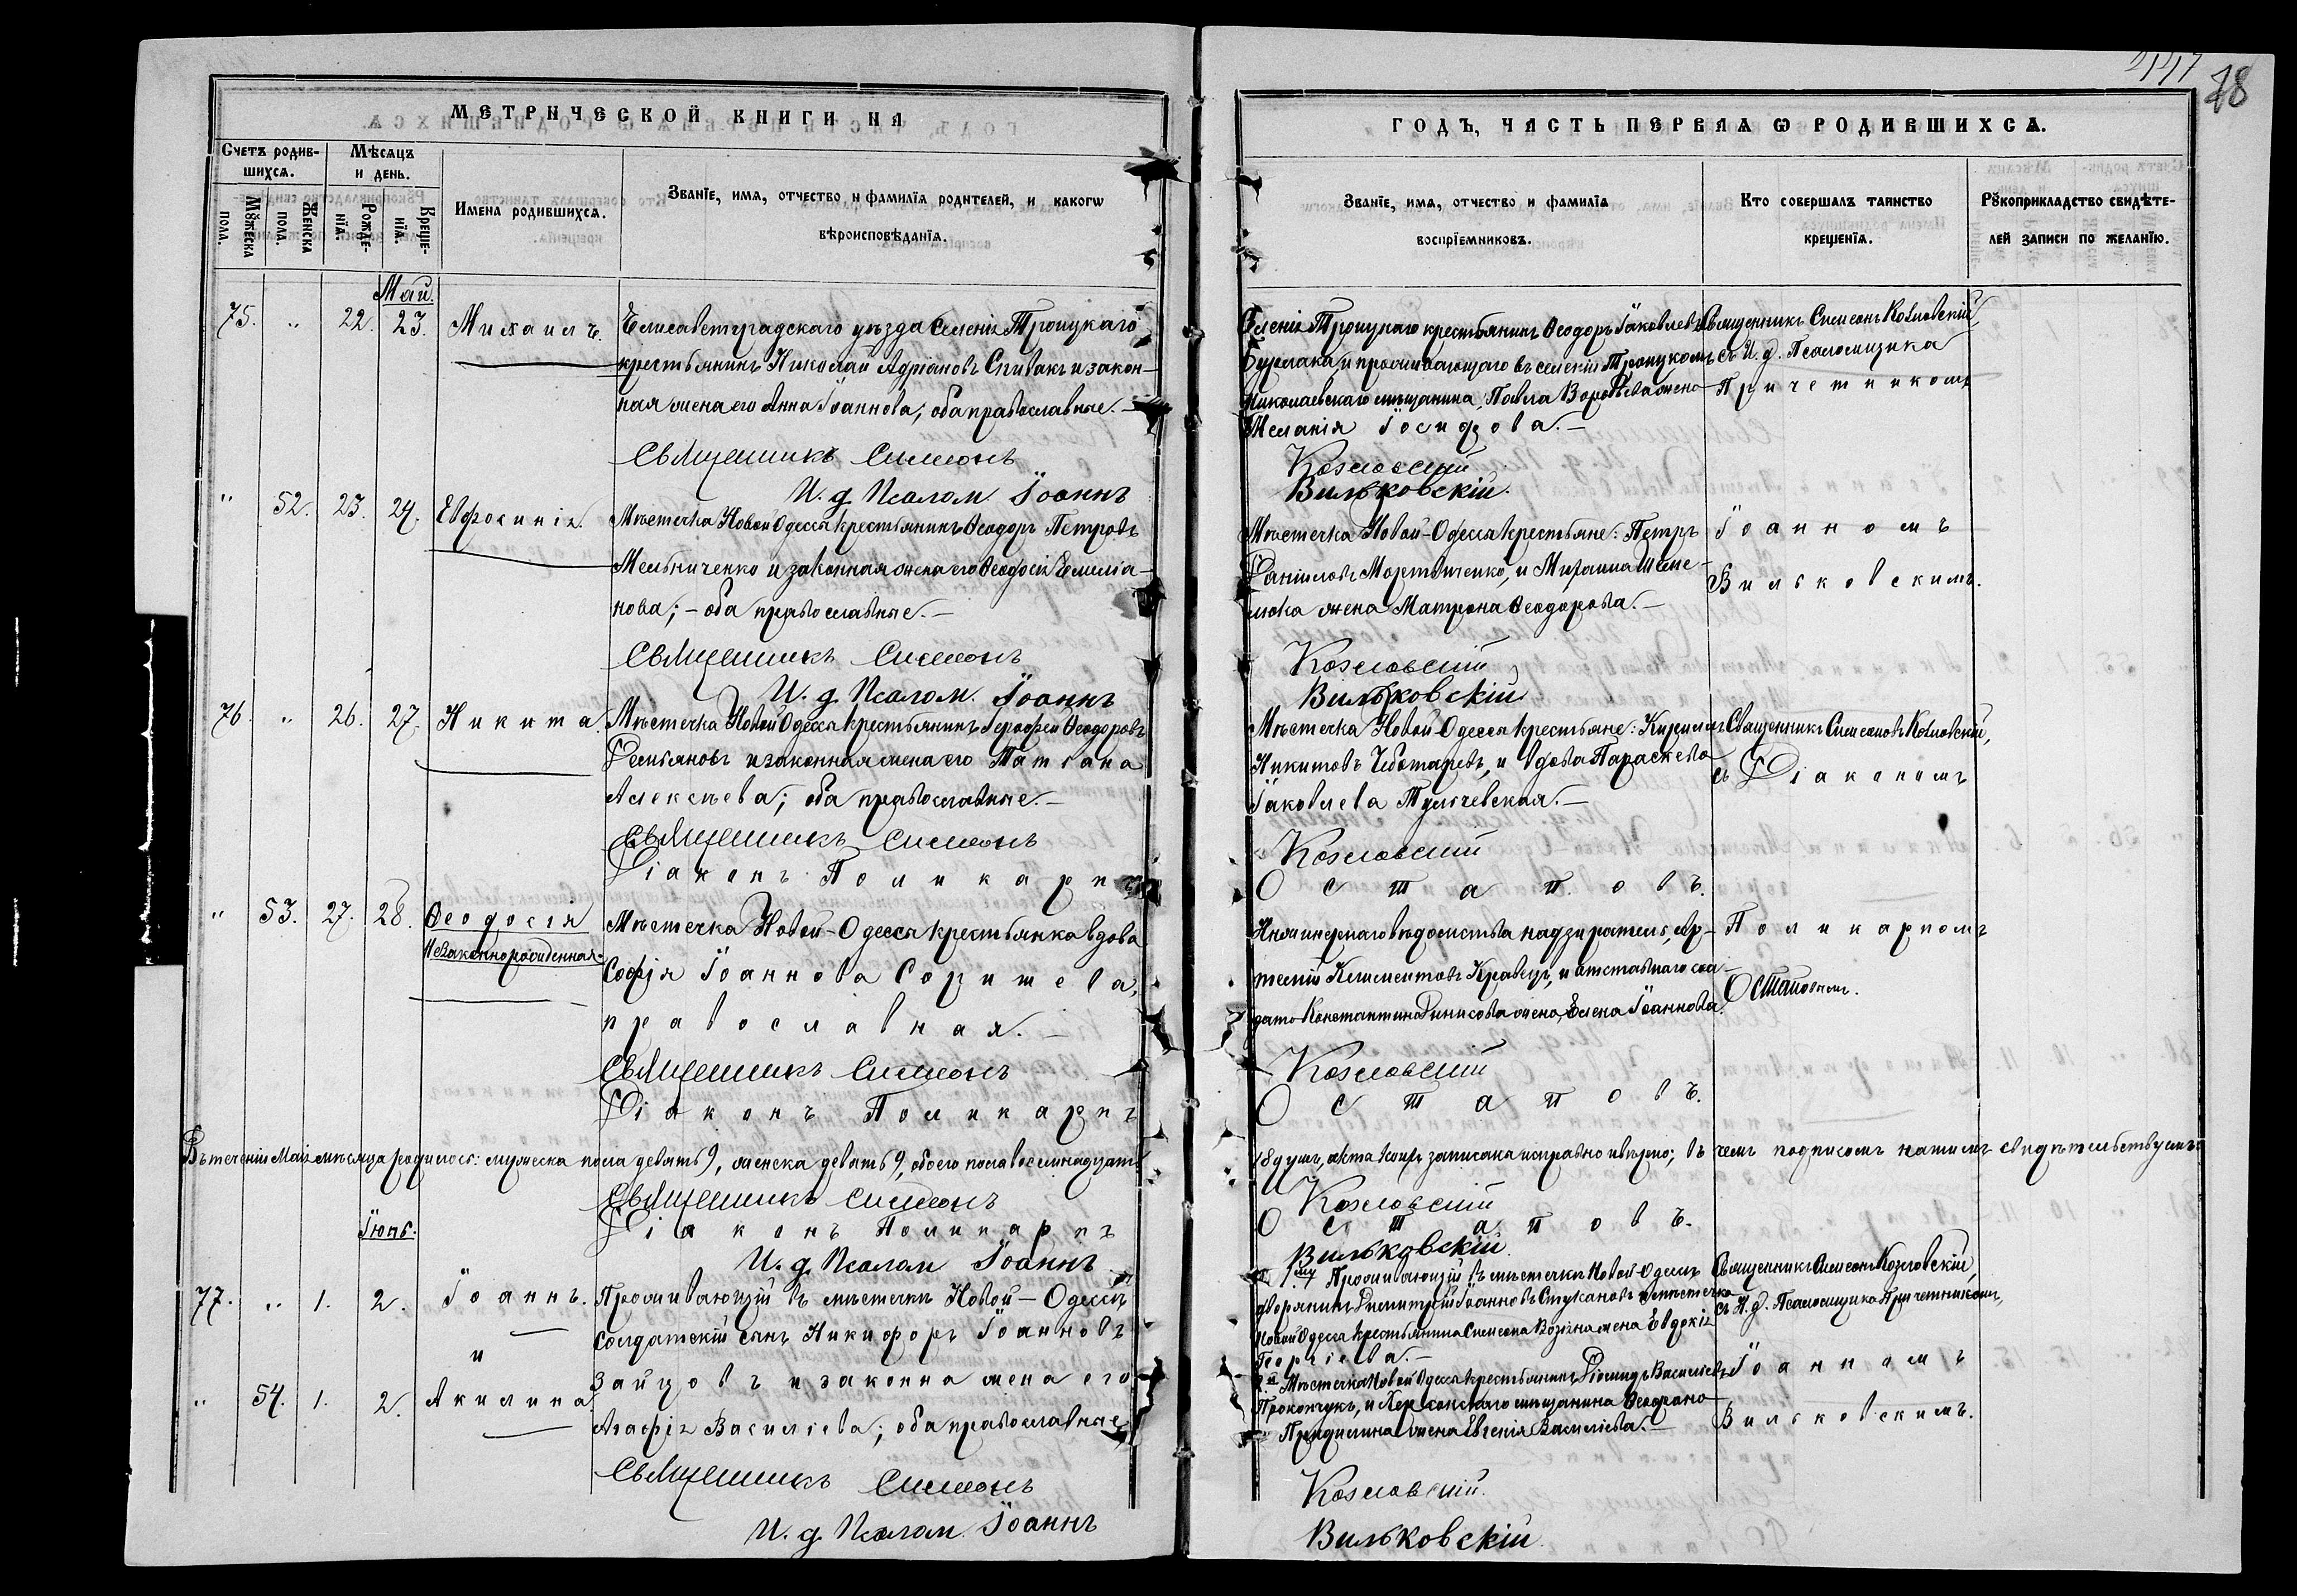 МЕТРИЧЕСКОЙ КНИГИ НА
Счетъ родив-
шихся.
Мѣсяцъ
и день.
Мꙋжеска
пола.
Женска
пола.
Рожде-
нїя.
Креще-
нїя.
Имена родившихся.
Званїе, имя, отчество и фамилїя родителей, и какогѡ
вѣроисповѣданїя.
Май.
75. " 22. 23. Михаилъ. Елисаветградскаго уѣзда селенія Троицкаго
крестьянинъ Николай Адріановъ Спивакъ и закон-
ная жена его Анна Іоаннова; оба православные. —
Священникъ Симеонъ
И. д. Псалом. Іоаннъ
" 52. 23. 24. Евфросинія. Мѣстечка Новой Одессы крестьянинъ Ѳеодоръ Петровъ
Мельниченко и законная жена его Ѳеодосія Емиліа-
нова; — оба православные. —
Священникъ Симеонъ
И. д. Псалом. Іоаннъ
76. " 26. 27. Никита. Мѣстечка Новой Одессы крестьянинъ Іерофей Ѳеодоровъ
Демьяновъ и законная жена его Татіана
Алексѣева; оба православные. —
Священникъ Симеонъ
Діаконъ Поликарпъ
" 53. 27. 28. Ѳеодосія Мѣстечка Новой-Одессы крестьянка вдова
Незаконнорожденная.
Софія Іоаннова Соришева,
православная. —
Священникъ Симеонъ
Діаконъ Поликарпъ
Въ теченіи Маія мѣсяца родилось: мужеска пола девять 9, женска девять 9, обоего пола восемнадцать
Священникъ Симеонъ
Діаконъ Поликарпъ
И. д. Псалом Іоаннъ
Іюнь.
77. " 1. 2. Іоаннъ. Проживающій въ мѣстечкѣ Новой-Одессѣ
солдатскій сынъ Никифоръ Іоанновъ
и
Зайцовъ и законна жена его
" 54. 1. 2. Акилина
Агафія Василіева; оба православные
Священникъ Симеонъ
И. д. Псалом. Іоаннъ
78
ГОДЪ, ЧАСТЬ ПЕРВАЯ Ѡ РОДИВШИХСЯ.
Званїе, имя, отчество и фамилїя
воспрїемниковъ.
Кто совершалъ таинство
крещенїя.
Рꙋкоприкладство свидѣте-
лей записи по желанїю.
Селенія Троицкаго крестьянинъ Ѳеодоръ Іаковлевъ Священникъ Симеонъ Козловскій
Бурлака, и проживающаго въ селеніи Троицкомъ съ И. д. Псаломщика
Николаевскаго мѣщанина, Павла Воробьева жена Причетникомъ
Меланія Іосифова. —
Козловскій
Вильковскій.
Мѣстечка Новой-Одессы крестьяне: Петръ Іоанномъ
Даніиловъ Мартыненко, и
жена Матрона Ѳеодорова. — Вильковскимъ.
Козловскій
Вильковскій
Мѣстечка Новой-Одессы крестьяне: Кириллъ Священникъ Симеонъ Козловскій,
Никитовъ Чеботаревъ, и вдова Параскева съ Діакономъ
Іаковлева Тульчевская. —
Козловскій
Остаповъ.
Инженернаго вѣдомства надзиратель, Ар- Поликарпомъ
темій Климентовъ Кравецъ, и отставнаго сол-
дата Константина Динисова жена, Елена Іоаннова. Остаповымъ.
Козловскій
Остаповъ.
18 душъ, акта коихъ записана исправно и вѣрно; въ чемъ подписомъ нашимъ свидѣтельствуемъ:
Козловскій
Остаповъ.
Вильковскій.
Проживающій въ мѣстечкѣ Новой-Одессѣ Священникъ Симеонъ Козловскій,
дворянинъ Димитрій Іоанновъ Стукановъ и мѣстечка съ И. д. Псаломщика Причетникомъ,
Новой Одессы крестьянина Симеона жена Евдокія
Георгіева. —
Мѣстечка Новой Одессы крестьянинъ Діомидъ Василіевъ Іоанномъ
Прокопчукъ, и Херсонскаго мѣщанина
жена Евгенія Василіева. — Вильковскимъ.
Козловскій.
Вильковскій.